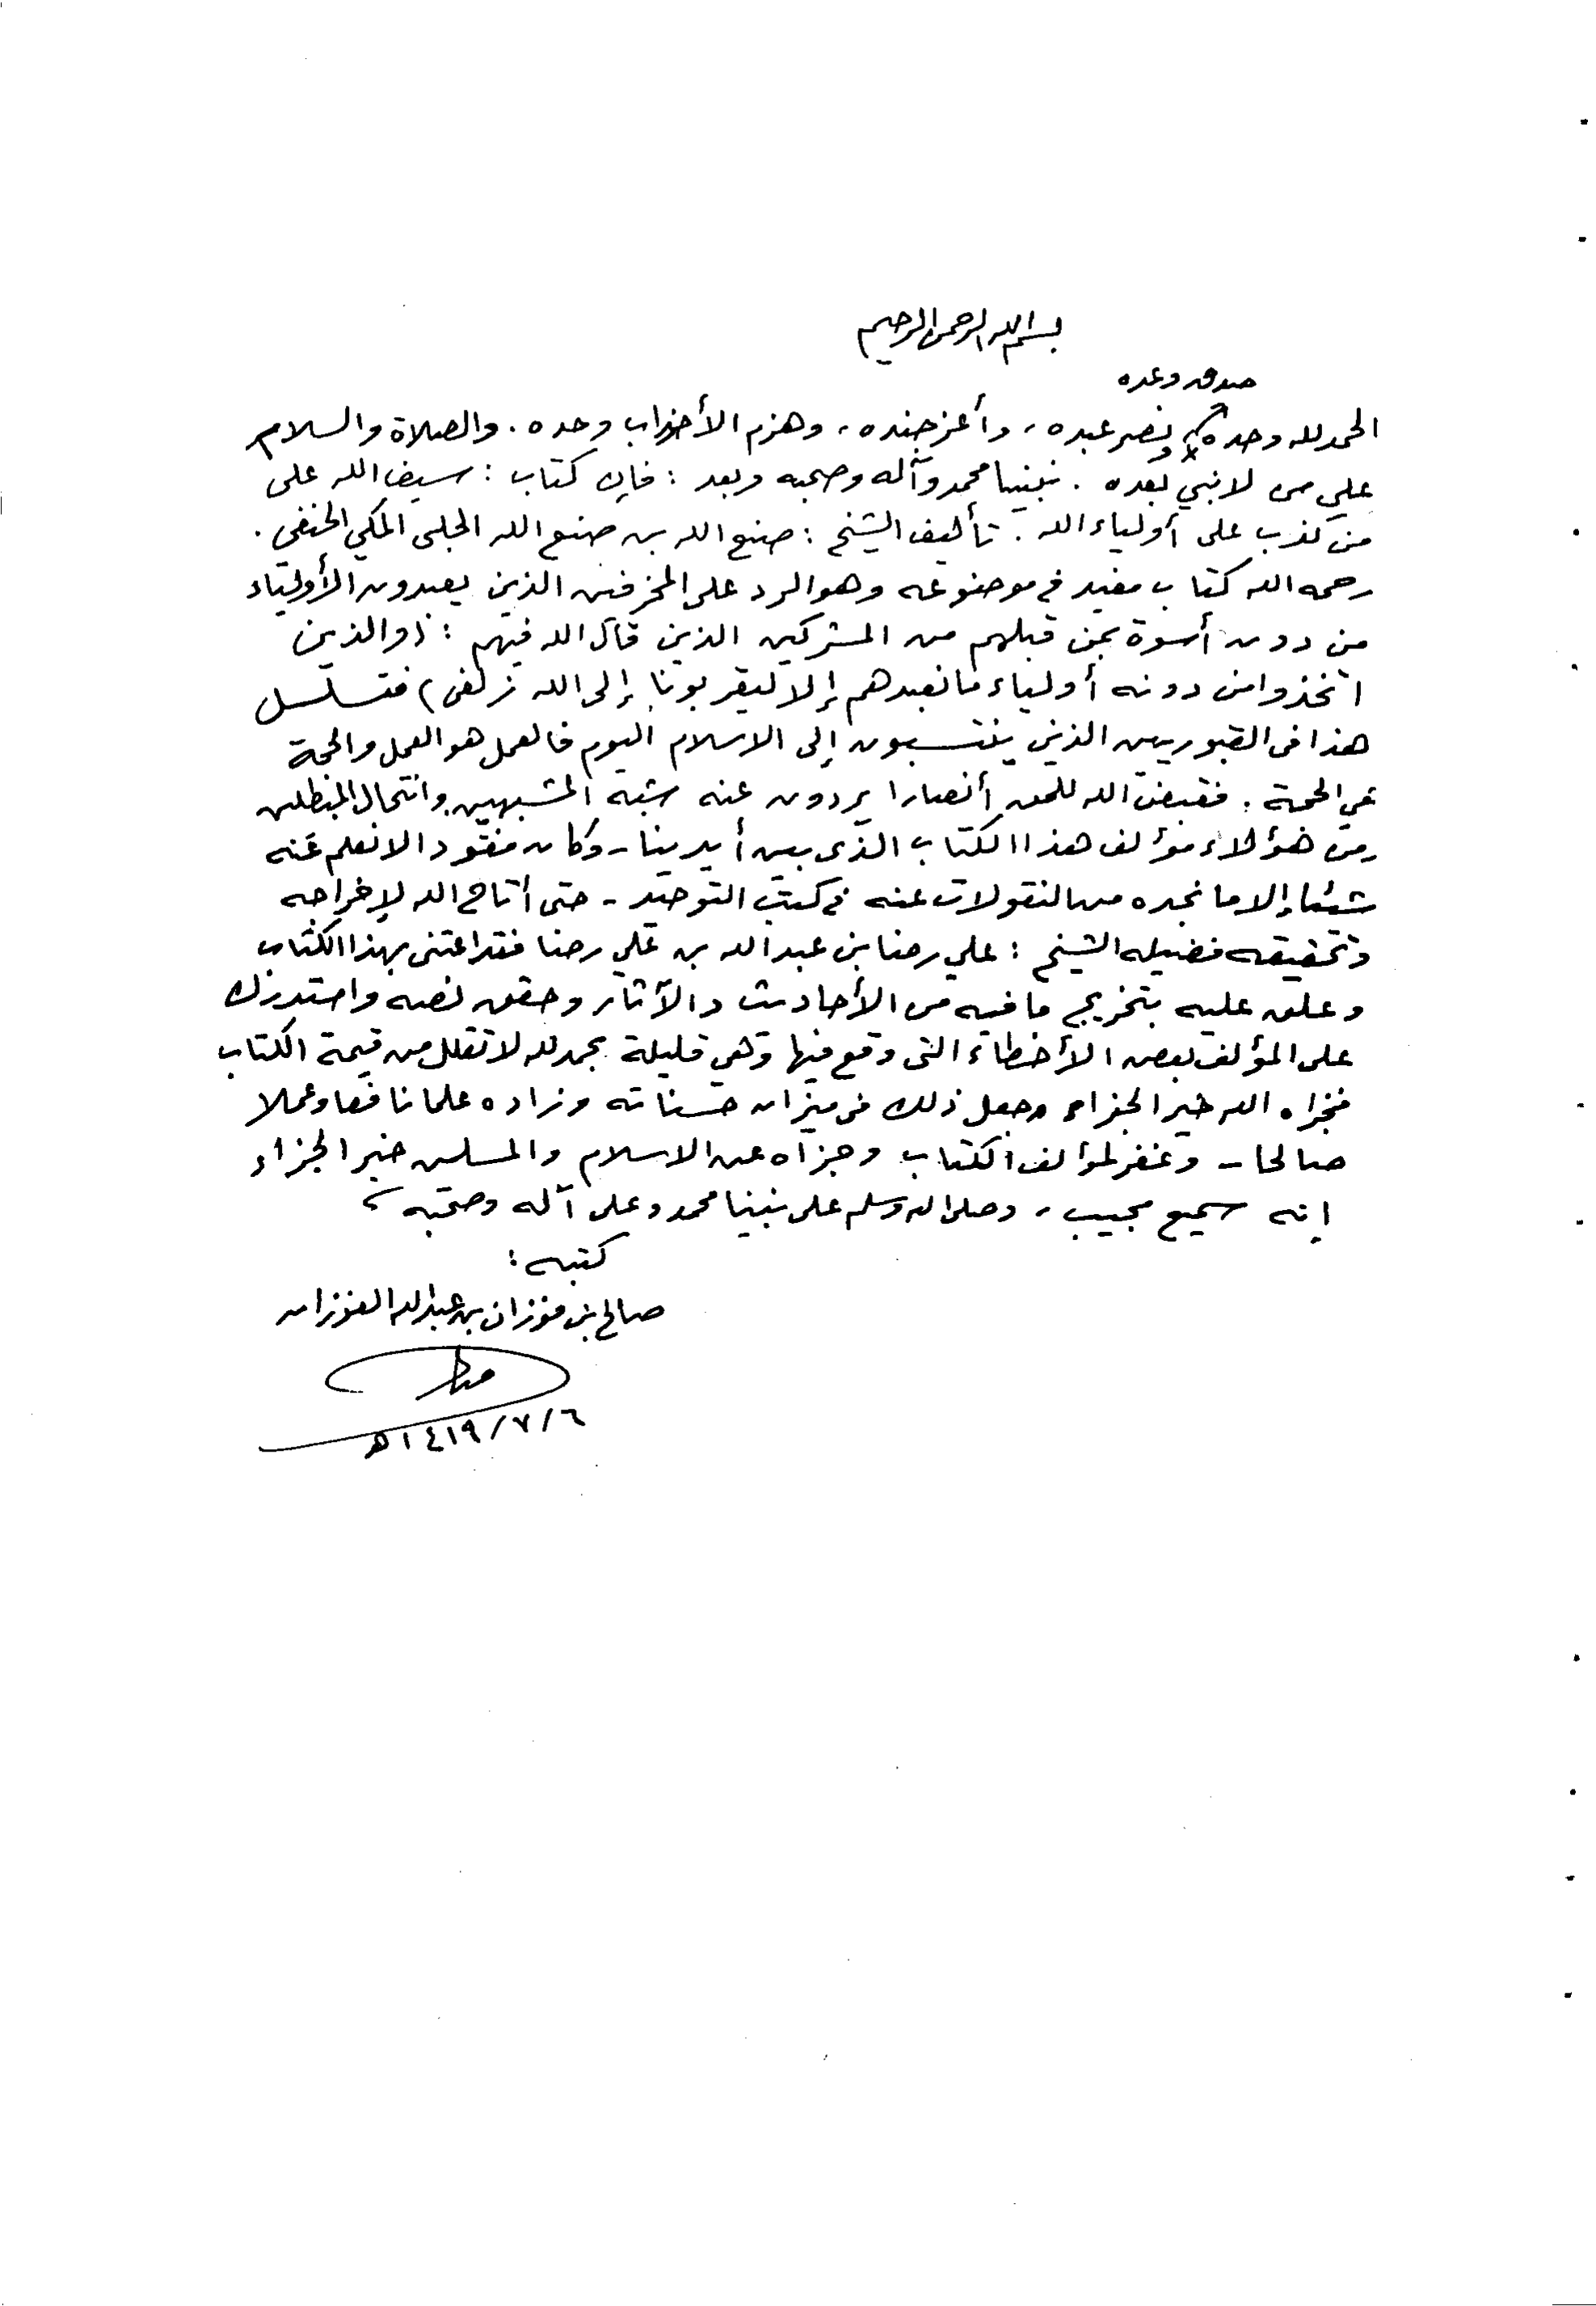 بسم الله الرحمن الرحيم
صدق وعده
الحمد لله وحده ونصر عبده، وأعز جنده، وهزم الأحزاب وحده. والصلاة والسلام
على من لا نبي بعده. نبينا محمد وآله وصحبه وبعد: فإن كتاب: سيف الله على
من كذب على أولياء الله. تأليف الشيخ: صنع الله بن صنع الله الحلبي المكي الحنفي.
رحمه الله كتاب مفيد في موضوعه وهو الرد على المخرفين الذين يعبدون الأولياء
من دون أسوة بمن قبلهم من المشركين الذين قال الله فيهم: (والذين
اتخذوا من دونه أولياء ما نعبدهم إلا ليقربونا إلى الله زلفى) فتسلسل
هذا في القبوريين الذين ينتسبون إلى الاسلام اليوم فالعمل هو العمل والحجة
هي الحجة. فقيض الله للحق أنصارا يردون عنه شبه المشبهين وانتحال المبطلين
ومن هؤلاء مؤلف هذا الكتاب الذي بين أيدينا - وكان مفقودا لا نعلم عنه
شيئا إلا ما نجده من النقولات عنه في كتب التوحيد - حتى أتاح الله لإخراجه
وتحقيقه فضيلة الشيخ: علي رضا بن عبد الله بن علي رضا فقد اعتنى بهذا الكتاب
وعلق عليه بتخريج ما فيه من الأحاديث والآثار وحقق نصه واستدرك
على المؤلف بعض الأخطاء التي وقع فيها وهي قليلة بحمد لله لا تقلل من قيمة الكتاب
فجزاه الله خير الجزاء وجعل ذلك في ميزان حسناته وزاده علما نافعا وعملا
صالحا - وغفر لمؤلف الكتاب وجزاه عن الاسلام والمسلمين خير الجزاء
إنه سميع مجيب، وصلى الله وسلم على نبينا محمد وعلى آله وصحبه،
كتبه:
صالح بن فوزان بن عبد الله الفوزان
٦/٧/١٤١٩هـ